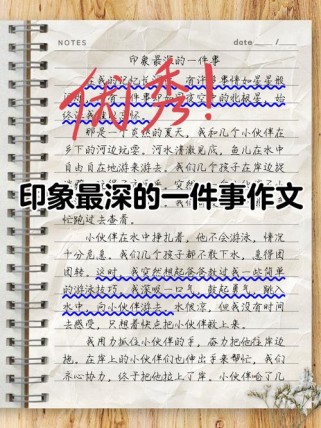 NOTES date / /
印象最深的一件事
在我的记忆长河中，有许多事情如星星般
有一件事
终
优秀！
那是一个炎热的夏天，我和几个小伙伴在
乡下的河边玩耍。河水清澈见底，鱼儿在水中
自由自在地游来游去。我们几个孩子在岸边
印象最深的一件事作文
忙跑过去查看。
小伙伴在水中挣扎着，他不会游泳，情况
十分危急。我们几个孩子都不敢下水，急得团
团转。这时，我突然想起爸爸教过我一些简单
的游泳技巧。我深吸一口气，鼓起勇气，跳入
水中，向小伙伴游去。水很凉，但我没有时间
去感受，只想着快点把小伙伴救上来。
我用力抓住小伙伴的手，奋力把他往岸边
拖。在岸上的小伙伴们也伸出手来帮忙，我们
齐心协力，终于把他拉上了岸。小伙伴呛了几